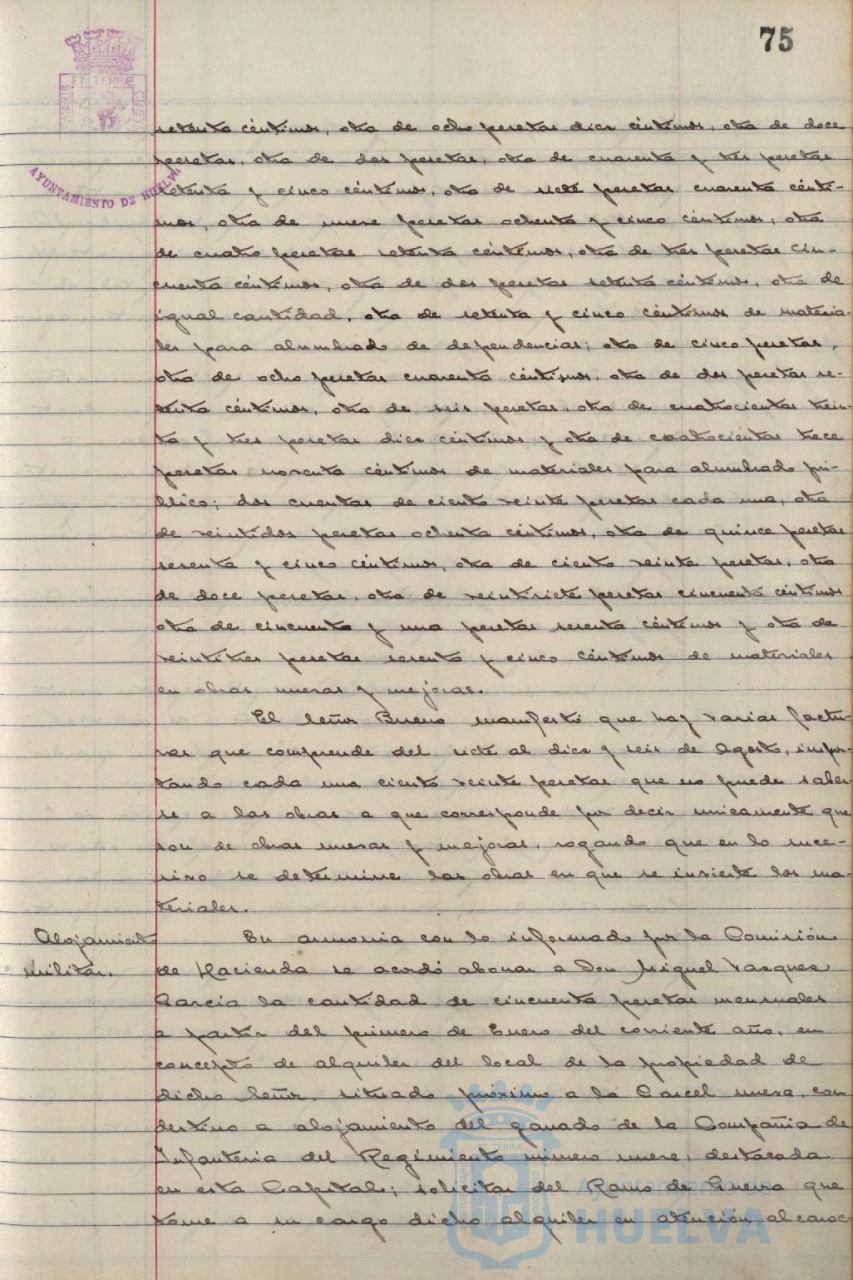 75
AYUNTAMIENTO DE HUELVA
setenta céntimos, otra de ocho pesetas diez céntimos, otra de doce
pesetas, otra de dos pesetas, otra de cuarenta y tres pesetas
setenta y cinco céntimos, otra de siete pesetas cuarenta cénti-
mos, otra de nueve pesetas ochenta y cinco céntimos, otra
de cuatro pesetas setenta céntimos, otra de tres pesetas cin-
cuenta céntimos, otra de dos pesetas setenta céntimos, otra de
igual cantidad, otra de setenta y cinco céntimos de materia-
les para alumbrado de dependencias; otra de cinco pesetas,
otra de ocho pesetas cuarenta céntimos, otra de dos pesetas se-
tenta céntimos, otra de seis pesetas, otra de cuatrocientas trein-
ta y tres pesetas diez céntimos y otra de cuatrocientas trece
pesetas noventa céntimos de materiales para alumbrado pú-
blico; dos cuentas de ciento veinte pesetas cada una, otra
de veintidos pesetas ochenta céntimos, otra de quince pesetas
sesenta y cinco céntimos, otra de ciento veinte pesetas, otra
de doce pesetas, otra de veintisiete pesetas cincuenta céntimos
otra de cincuenta y una pesetas sesenta céntimos y otra de
veintitres pesetas sesenta y cinco céntimos de materiales
en obras nuevas y mejoras.
El Señor Bueno manifestó que hay varias factu-
ras que comprende del siete al diez y seis de Agosto, impor-
tando cada una ciento veinte pesetas que no puede saber-
se a las obras a que corresponde por decir unicamente que
son de obras nuevas y mejoras, rogando que en lo suce-
sivo se determine las obras en que se invierte los ma-
teriales.
Alojamiento
Militar.
En armonia con lo informado por la Comisión
de Hacienda se acordó abonar a Don Miguel Vazquez
García la cantidad de cincuenta pesetas mensuales
a partir del primero de Enero del corriente año, en
concepto de alquiler del local de la propiedad de
dicho Señor, situado próximo a la Carcel nueva, con
destino a alojamiento del ganado de la Compañia de
Infanteria del Regimiento número nueve, destacada
en esta Capital; solicitar del Ramo de Guerra que
tome a su cargo dicho alquiler en atención al carac-
Ayuntamiento de
HUELVA